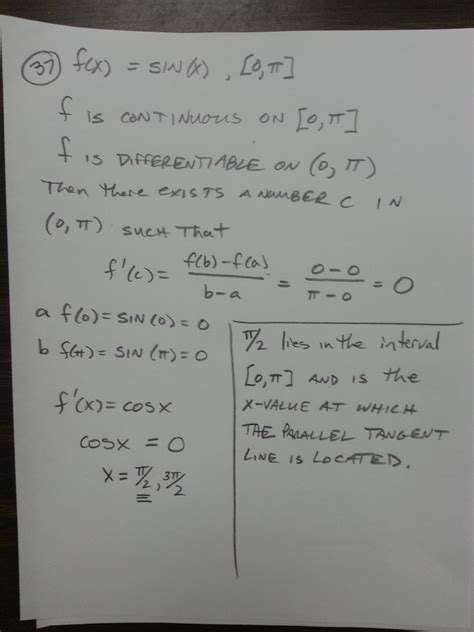 37 f(x) = SIN(x), [0,π]
f IS CONTINUOUS ON [0,π]
f IS DIFFERENTIABLE ON (0,π)
Then there EXISTS A NUMBER C IN
(0,π) SUCH THAT
f'(c) = f(b)-f(a) / b-a = 0-0 / π-0 = 0
a f(0) = SIN(0) = 0
b f(π) = SIN(π) = 0
f'(x) = cosx
cosx = 0
x = π/2, 3π/2
π/2 lies in the interval
[0,π] AND is the
X-VALUE AT WHICH
THE PARALLEL TANGENT
LINE IS LOCATED.